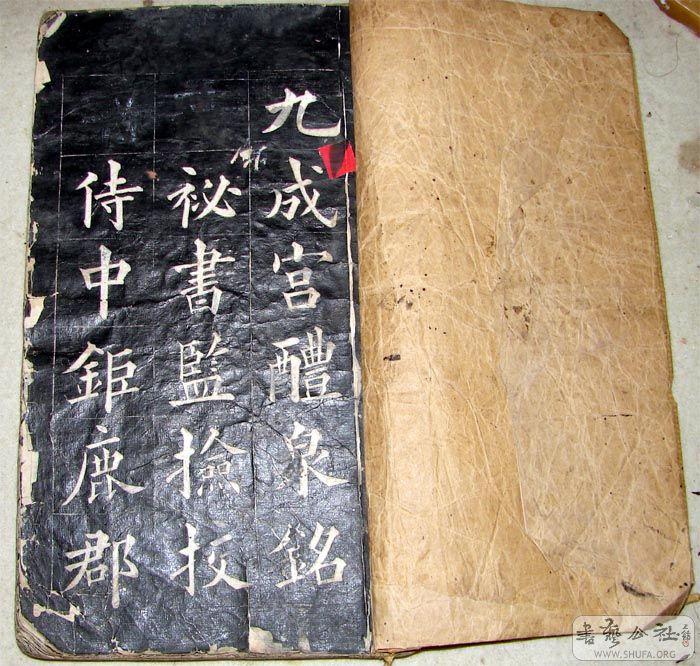 九成宮醴泉銘
祕書監撿挍
侍中鉅鹿郡
書藝公社
WWW.SHUFA.ORG